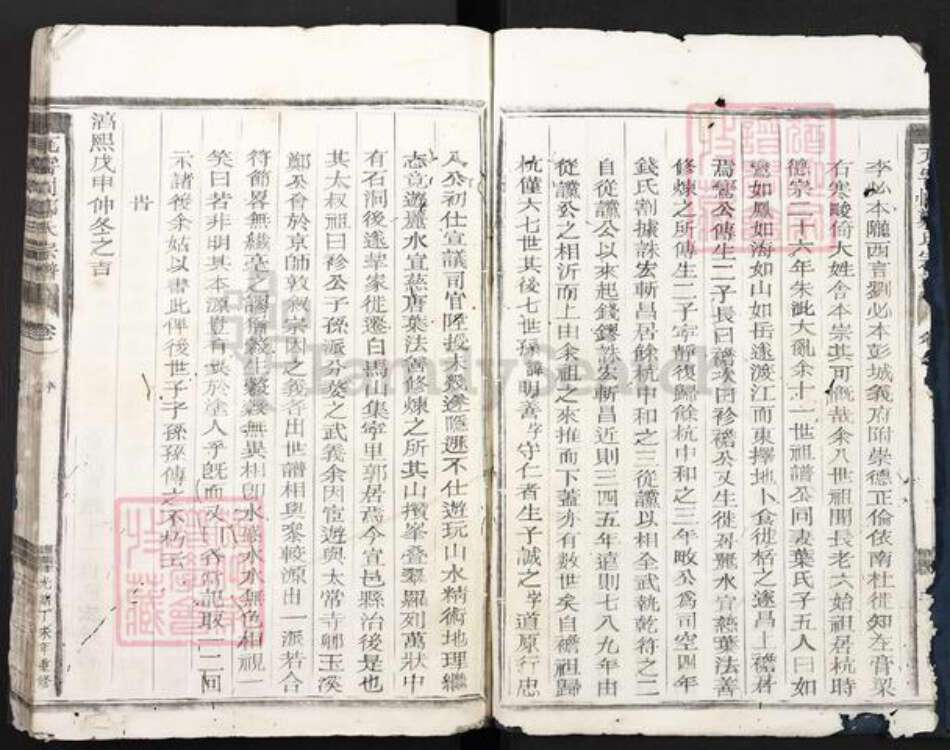 李必本隴西言劉必本彭城義府附崇德正倫依南杜徙知在膏梁
右寒畯倚大姓舍本宗其可慨哉余八世祖聞長老六始祖居杭時
德宗二十六年朱泚大亂余十一世祖譜公同妻葉氏子五人曰如
鸞如鳳如海如山如岳遂渡江而東擇地卜食徙栝之遂昌上䄡君
焉鸞公傳生二子長曰䄡次曰袗䄡公又生徙孫麗水宜慈葉法善
修煉之所傳生二子寜靜復歸餘杭中和之三年畋公為司空四年
錢氏割據誅宏斬昌居餘杭中和之三從讜以相全武執乾符之二
自從讜公以來起錢鏐誅宏斬昌近則三四五年遠則七八九年由
從讜公之相沂而上由余祖之來推而下蓋亦有數世矣自䄡祖歸
杭僅六七世其後七世孫諱明善字守仁者生子誠之字道原行忠
八公初仕宣議司官陞授大幾邊隱遯不仕遊玩山水精術地理繼
志意遊麗水宜慈唐葉法善修煉之所其山攢峯疊羣羅列萬狀中
有石洞後遂挈家徙遷白馬山集寧里郭居焉今宣邑縣治後是也
其太叔祖曰袗公子孫派分婺之武義余因宦遊與太常寺鄉玉溪
鄭公會於京師敦叙宗因之義各出世譜相與參較源由一派若合
符節畧無纖毫之謬䜟穀生穀穀無異相即水感水水無色相視一
笑曰若非明其本源豈有異於塗人乎旣而又
示諸後余姑以書此俾後世子子孫孫傳之不朽云
旹
淯熙戊申仲冬之吉
光緒丁未年重修
FamilySearch